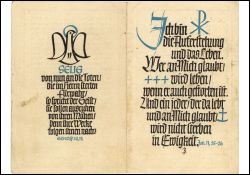 SELIG
von nun an die Toten,
die im Herrn sterben
so spricht der Geist,
sie sollen ausruhen
von ihren Mühen,
denn ihre Werke
folgen ihnen nach
Ich bin
die Auferstehung
und das Leben.
Wer an Mich glaubt
wird leben
wenn er auch gestorben ist.
Und ein jeder der da lebt
und an Mich glaubt
wird nicht sterben
in Ewigkeit. Joh. 11, 25-26